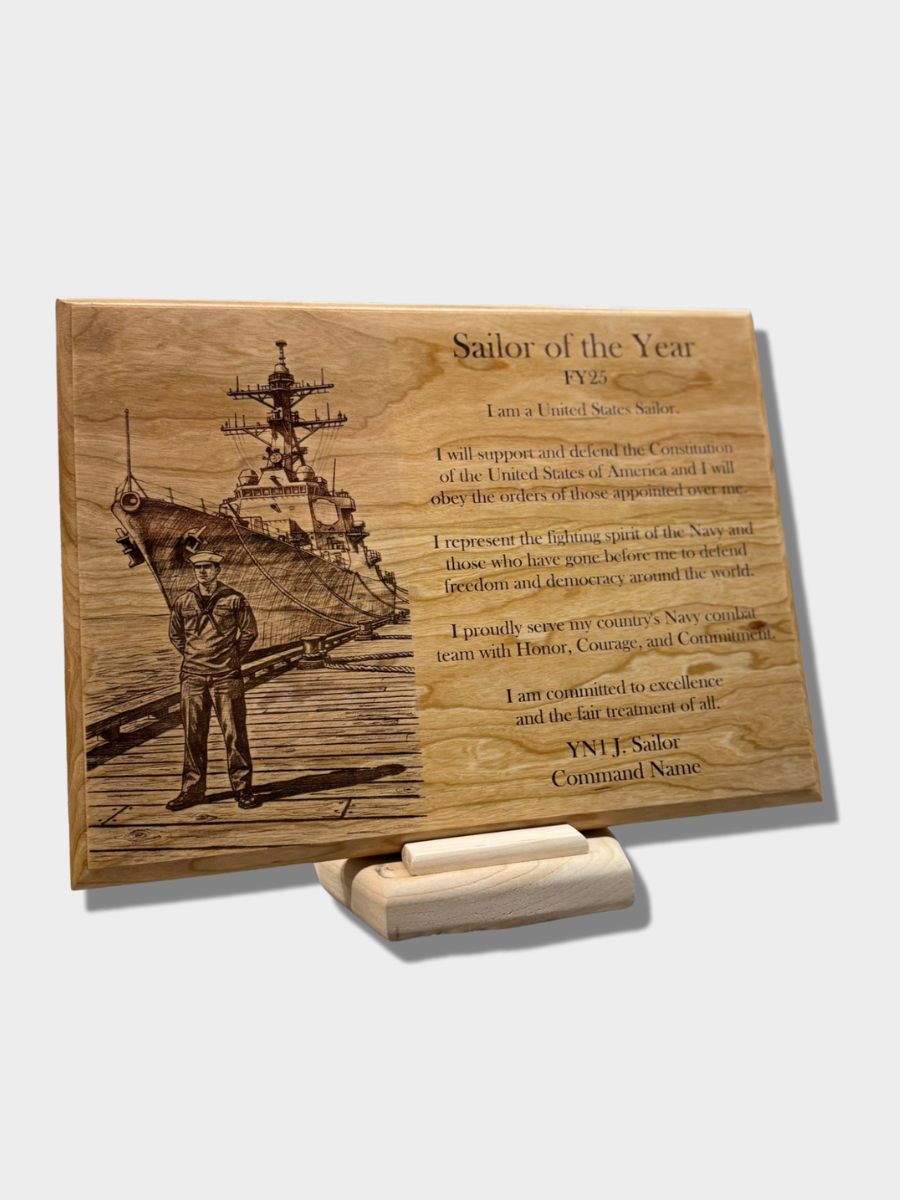 Sailor of the Year
FY25
I am a United States Sailor.
I will support and defend the Constitution
of the United States of America and I will
obey the orders of those appointed over me.
I represent the fighting spirit of the Navy and
those who have gone before me to defend
freedom and democracy around the world.
I proudly serve my country's Navy combat
team with Honor, Courage, and Commitment.
I am committed to excellence
and the fair treatment of all.
YN1 J. Sailor
Command Name